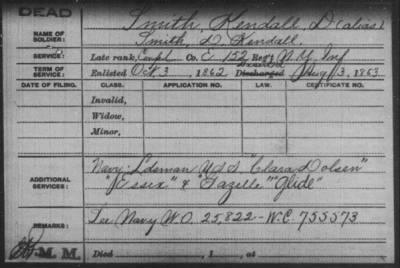 DEAD
NAME OF SOLDIER: Smith, Kendall, D (alias)
Smith, D. Kendall.
SERVICE: Late rank, Corpl Co. E. 152 Reg't N.Y. Inf
TERM OF SERVICE: Enlisted Oct. 3, 1862 Discharged Deserted Aug 13, 1863
DATE OF FILING. CLASS. APPLICATION NO. LAW. CERTIFICATE NO.
Invalid,
Widow,
Minor,
ADDITIONAL SERVICES: Navy: Ldsman U.S.S. "Clara Dolsen"
"Essex" & "Gazelle" "Glide"
REMARKS: See Navy W.O. 25,822 - W.C. 755573
M. M. Died , 1 , at